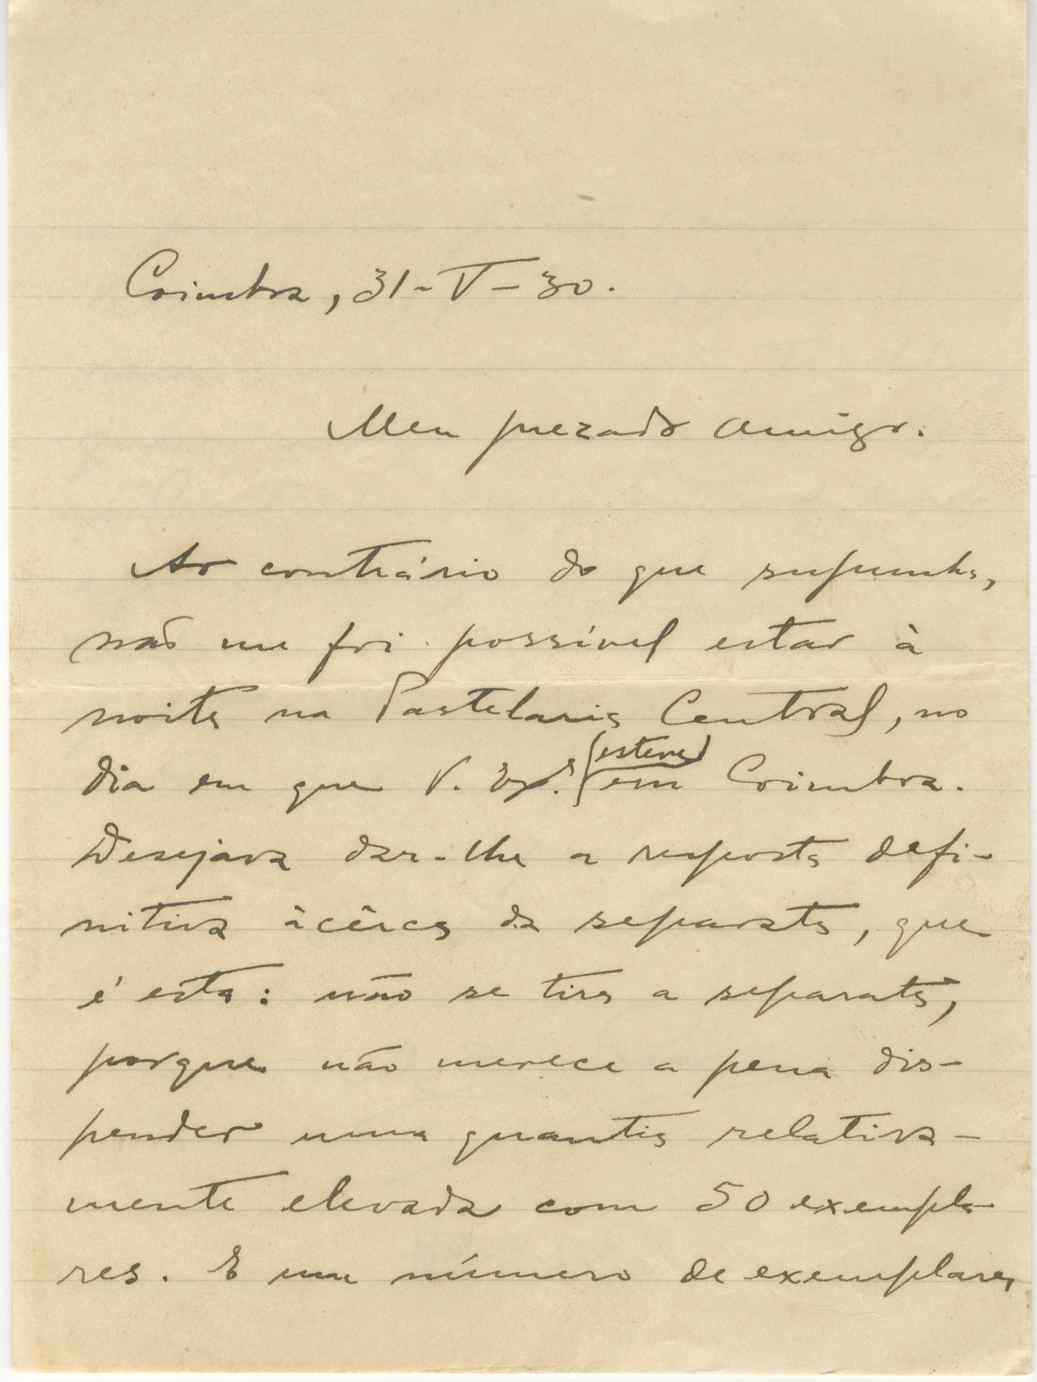 Coimbra, 31-V-30.
Meu prezado Amigo.
Ao contrário do que supunha,
não me foi possível estar à
noite na Pastelaria Central, no
dia em que V. Ex.ª (esteve) em Coimbra.
Desejava dar-lhe a resposta defi-
nitiva àcêrca da separata, que
é esta: não se tira a separata,
porque não merece a pena dis-
pender uma quantia relativa-
mente elevada com 50 exempla-
res. E um número de exemplares